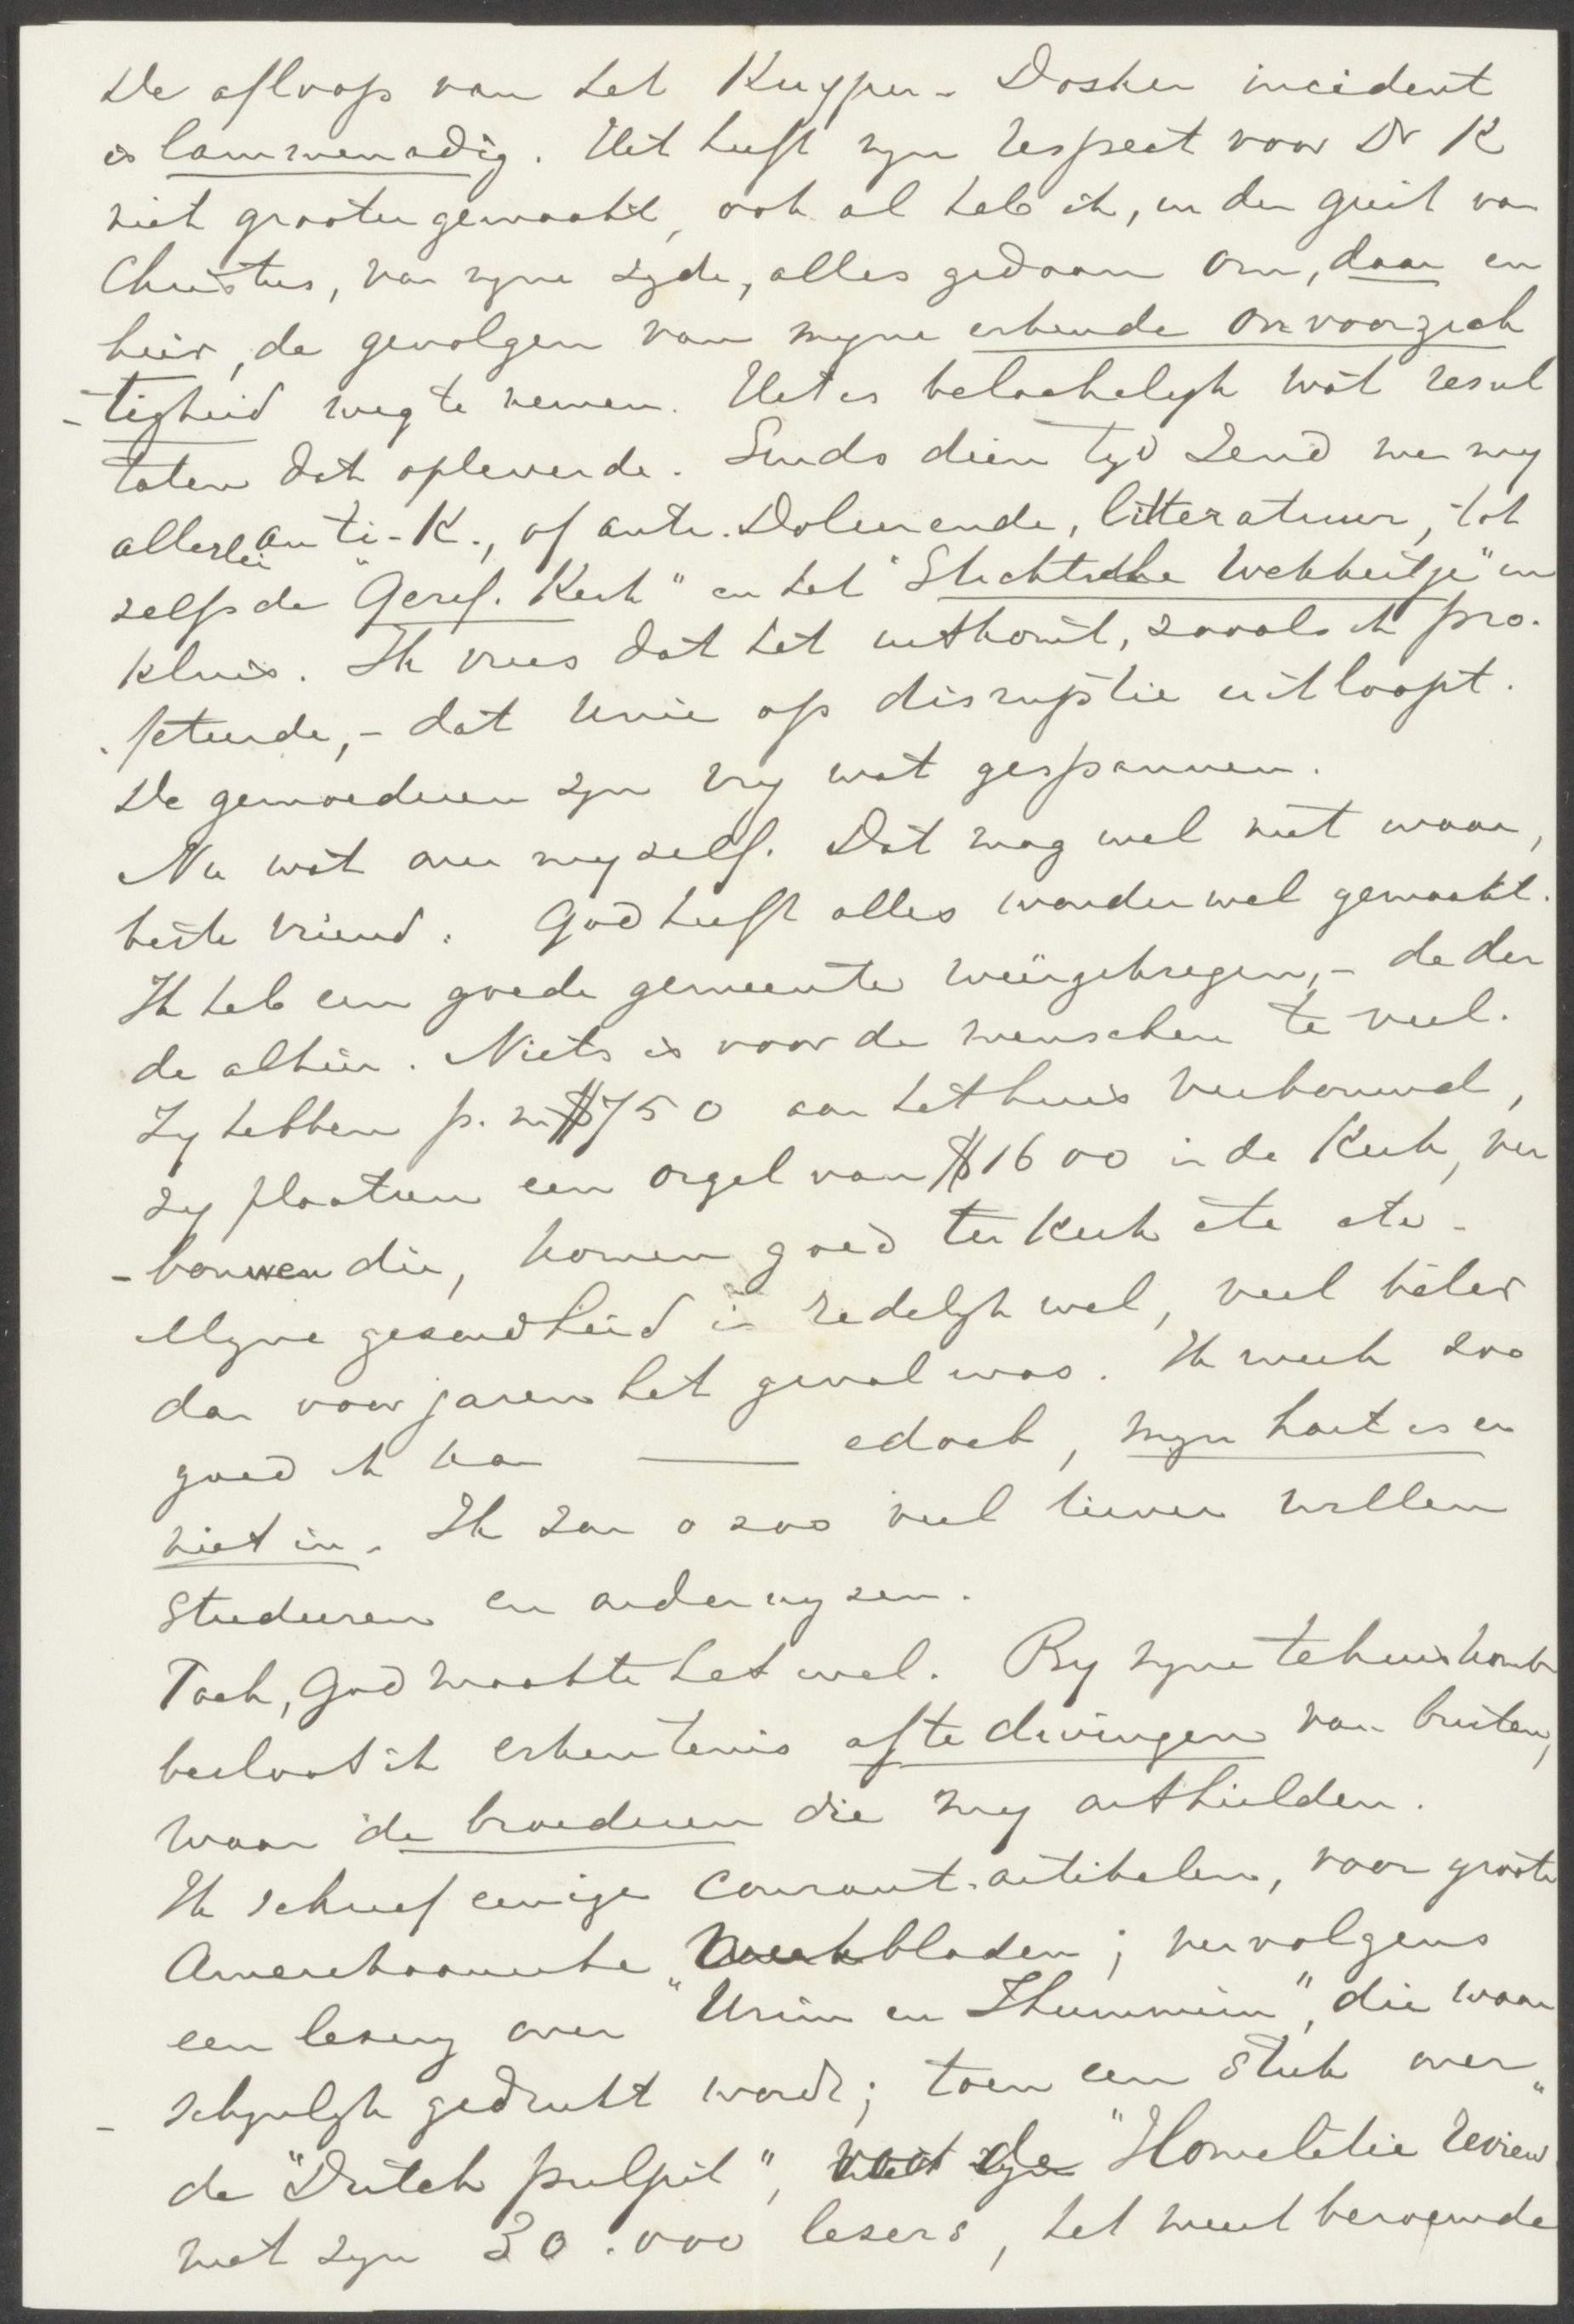 De afloop van het Kuyper - Dosker incident
is lammenadig. Het heeft myn respect voor Dr K
niet grooter gemaakt, ook al heb ik, in den geest van
Christus, van myne zyde, alles gedaan om, daar en
hier, de gevolgen van myne erkende onvoorzich
-tigheid weg te nemen. Het is belachelyk wat resul
taten dat opleverde. Sinds dien tyd zend men my
allerlei anti-K., of anti-Doleerende, litteratuur, tot
zelfs de "Geref. Kerk" en het "Stichtsche Wekkertje" in
kluis. Ik vrees dat het uitkomt, zooals ik pro-
feteerde, - dat Unie op disruptie uitloopt.
De gemoederen zyn vry wat gespannen.
Nu wat over myzelf. Dat mag wel niet waar,
beste vriend. God heeft alles wonder wel gemaakt.
Ik heb een goede gemeente weergekregen, - de der
de alhier. Niets is voor de menschen te veel.
Zy hebben p. m. $750 aan het huis verbouwd,
zy plaatsen een orgel van $1600 in de Kerk, ver
-bouwen die, komen goed ter Kerk etc etc -
Myne gezondheid is redelyk wel, veel beter
dan voor jaren het geval was. Ik werk zoo
goed ik kan —— edoch, myn hart is er
niet in. Ik zou o zoo veel liever willen
studeeren en onderwyzen.
Toch, God maakte het wel. By myne tehuiskomst
besloot ik erkentenis af te dwingen van buiten,
waar de broederen die my onthielden.
Ik schreef eenige Courant-artikelen, voor groote
Amerikaansche Weekbladen; vervolgens
een lezing over "Urim en Thummim", die waar
-schynlyk gedrukt wordt; toen een stuk over
de "Dutch pulpit", voor de "Homeletic Review"
met zyn 30.000 lezers, het meest beroemde